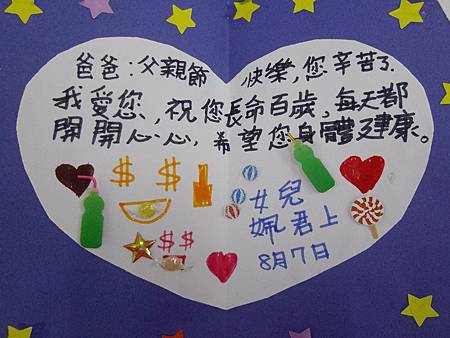 爸爸:父親節 快樂,您辛苦了.
我愛您,祝您長命百歲,每天都
開開心心,希望您身體建康。
$ $
$$
女兒
姵君上
8月7日